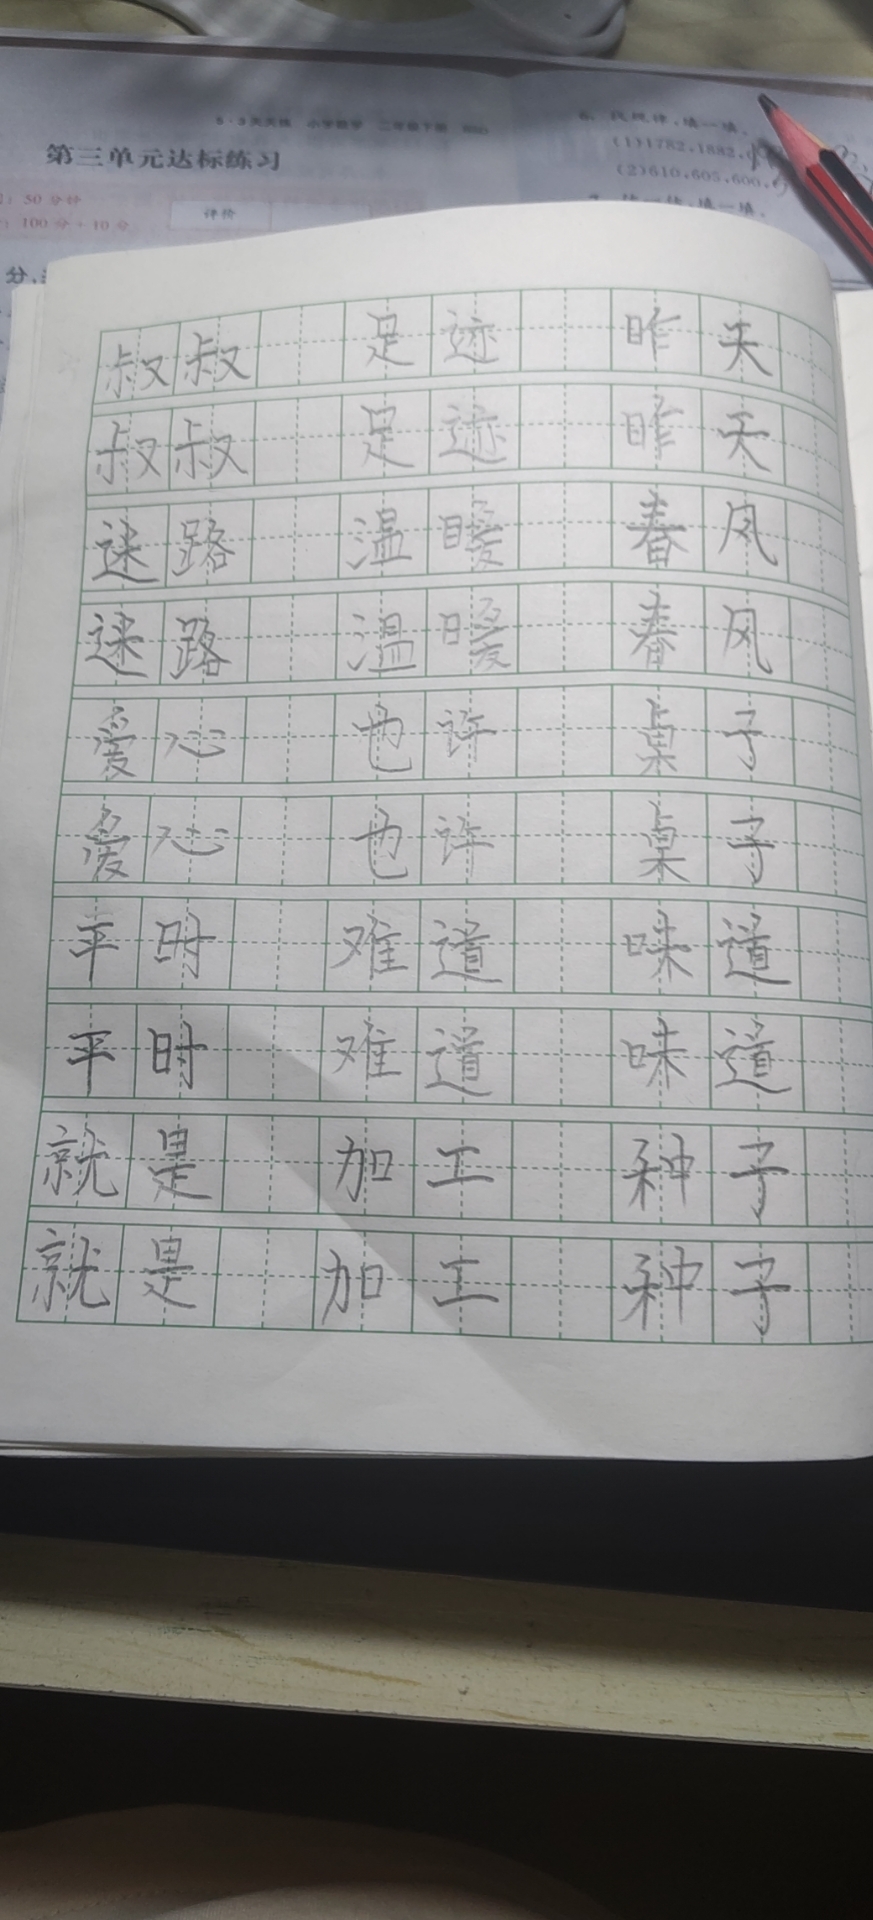 5·3天天练 小学数学 二年级下册 BSD
第三单元达标练习
50分钟
100分+10分
评价
6. 找规律,填一填。
(1)1782,1882,
(2)610,605,600,
填一填。
分,
叔叔 足迹 昨天
叔叔 足迹 昨天
迷路 温暖 春风
迷路 温暖 春风
爱心 也许 桌子
爱心 也许 桌子
平时 难道 味道
平时 难道 味道
就是 加工 种子
就是 加工 种子